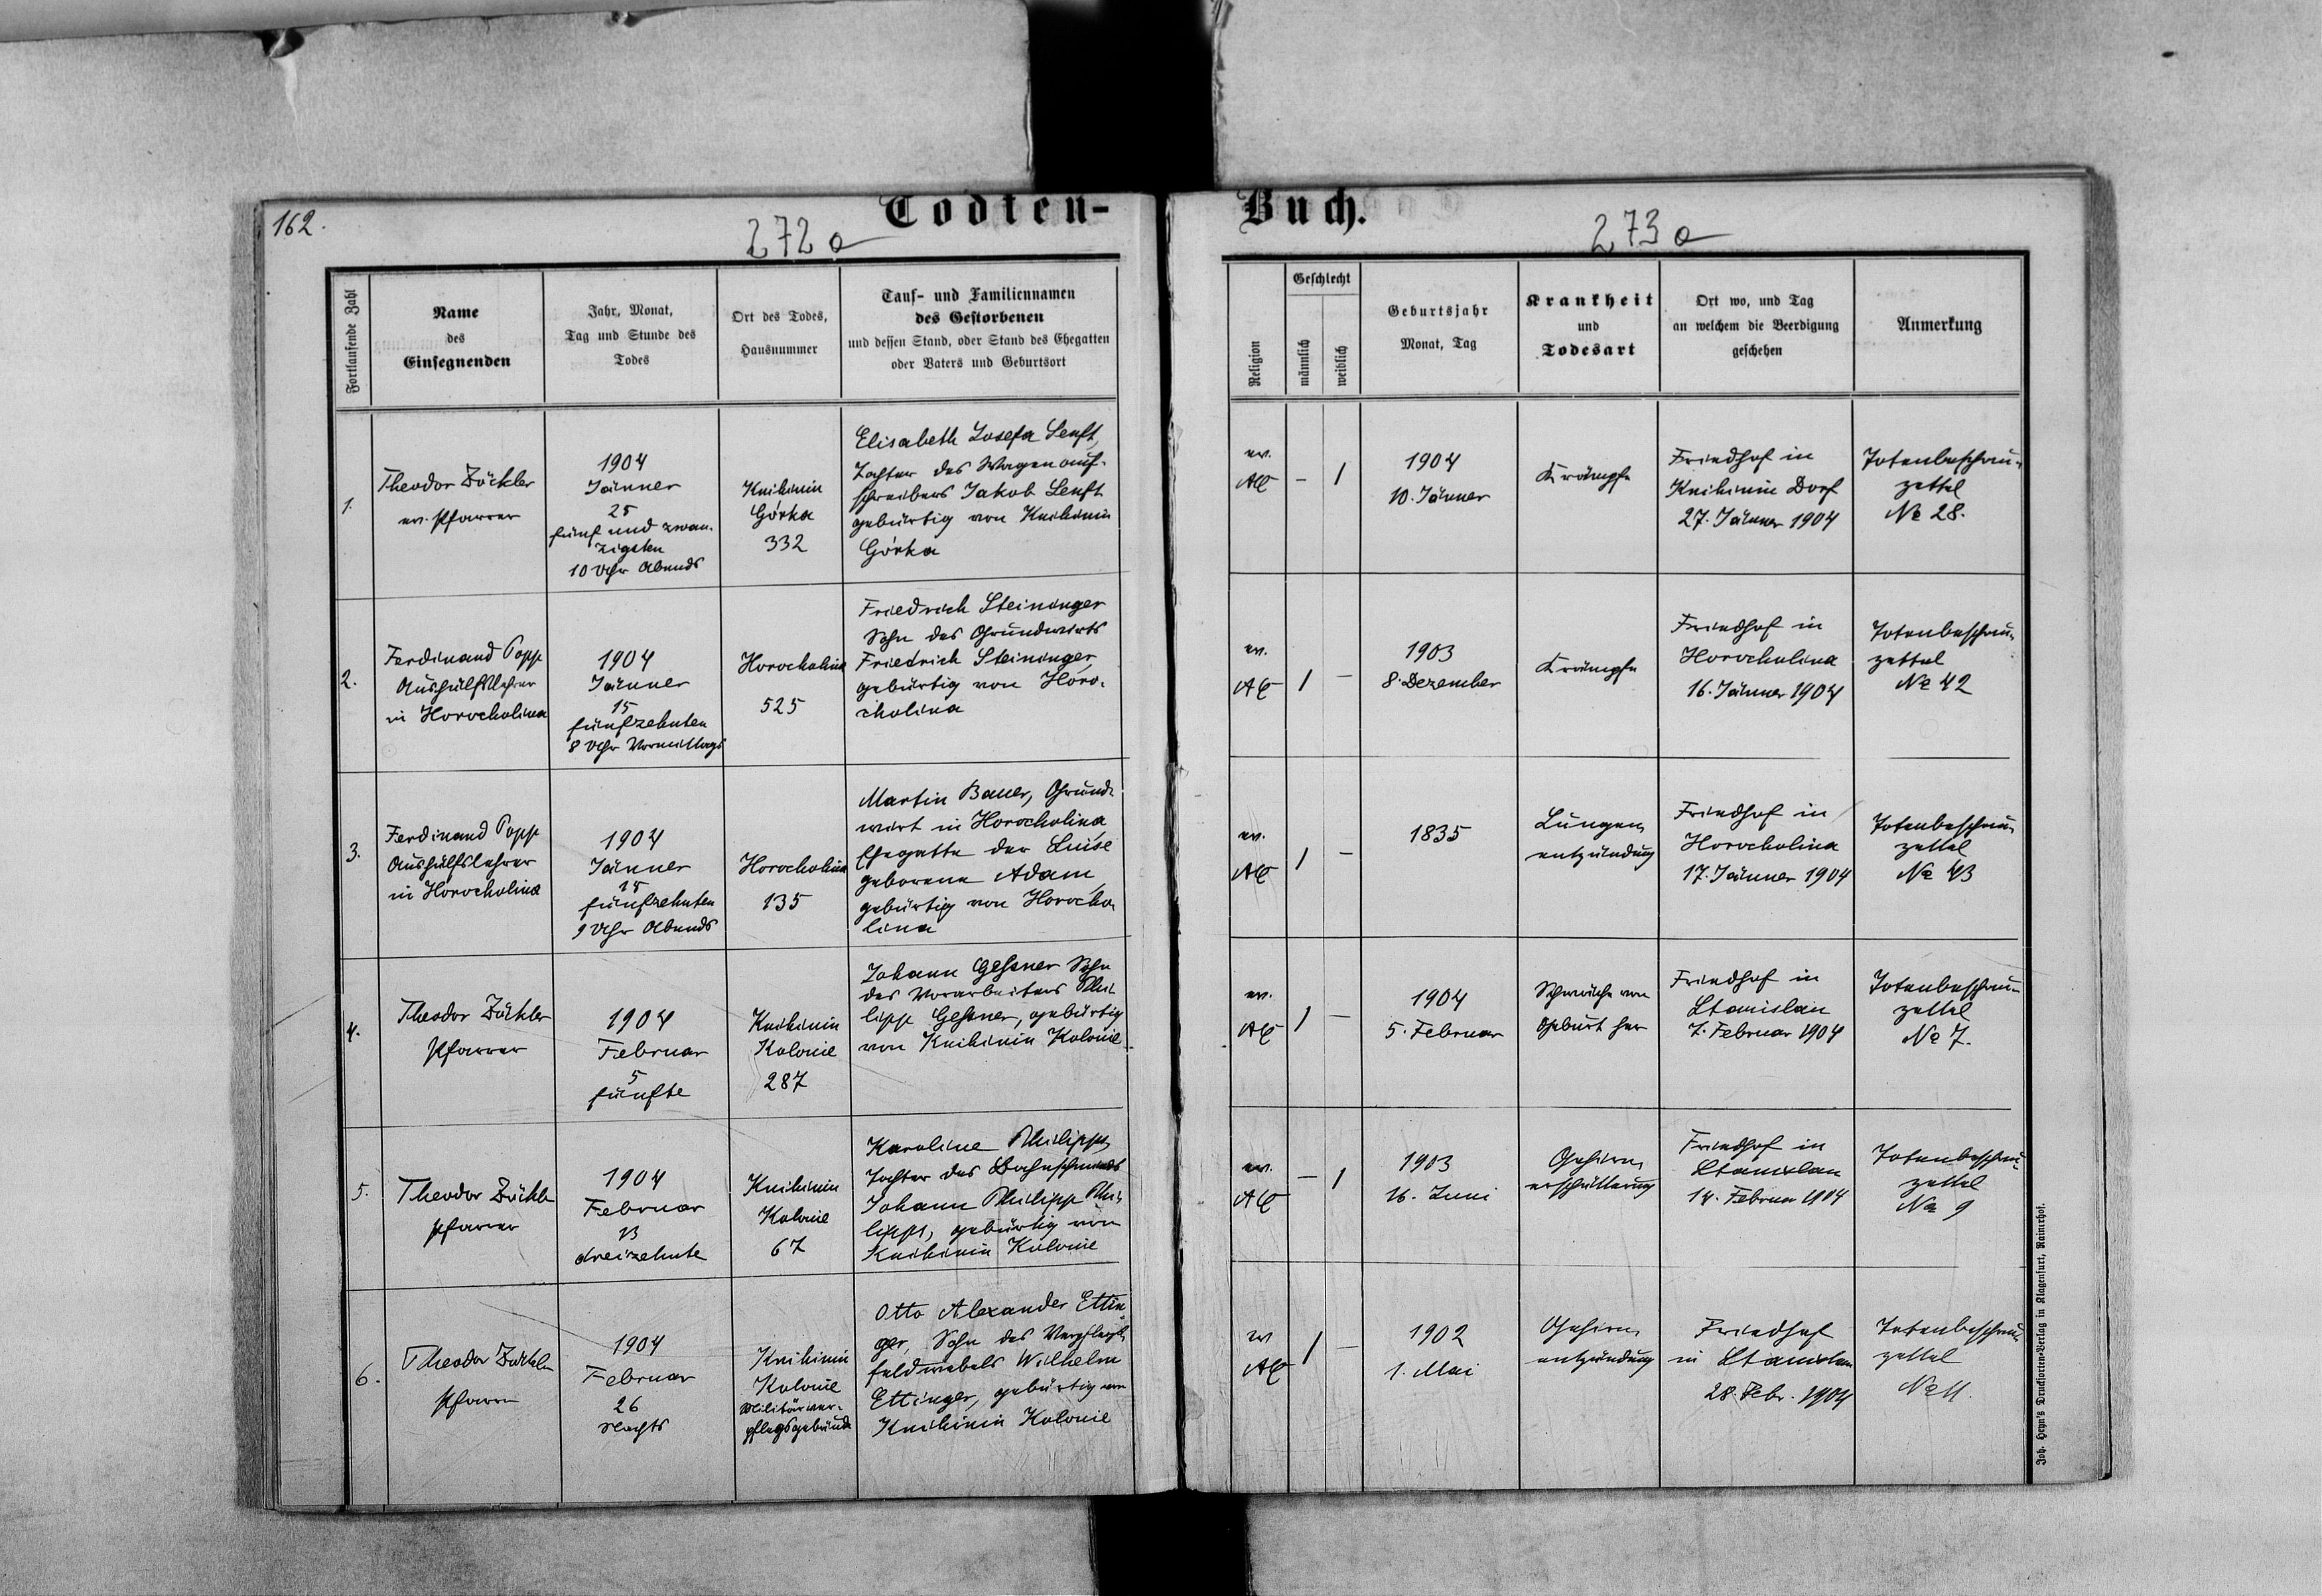 162.
Todten-
Buch.
272a
273a
Fortlaufende Zahl
Name
des
Einsegnenden
Jahr, Monat,
Tag und Stunde des
Todes
Ort des Todes,
Hausnummer
Tauf- und Familiennamen
des Gestorbenen
und dessen Stand, oder Stand des Ehegatten
oder Vaters und Geburtsort
Religion
Geschlecht
männlich
weiblich
Geburtsjahr
Monat, Tag
Krankheit
und
Todesart
Ort wo, und Tag
an welchem die Beerdigung
geschehen
Anmerkung
1.
Theodor Zöckler
ev. Pfarrer
1904
Jänner
25
fünf und zwan-
zigsten
10 Uhr Abends
Knihinin
Górka
332
Elisabeth Josefa Senft,
Tochter des Wagenauf-
schreibers Jakob Senft
gebürtig von Knihinin
Górka
ev.
AC
–
1
1904
10. Jänner
Krämpfe
Friedhof in
Knihinin Dorf
27. Jänner 1904
Totenbeschau-
zettel
№ 28.
2.
Ferdinand Popp
Aushülfslehrer
in Horocholina
1904
Jänner
15
fünfzehnten
8 Uhr Vormittags
Horocholina
525
Friedrich Steininger
Sohn des Grundwirts
Friedrich Steininger,
gebürtig von Horo-
cholina
ev.
AC
1
–
1903
8. Dezember
Krämpfe
Friedhof in
Horocholina
16. Jänner 1904
Totenbeschau-
zettel
№ 42
3.
Ferdinand Popp
Aushülfslehrer
in Horocholina
1904
Jänner
15
fünfzehnten
9 Uhr Abends
Horocholina
135
Martin Bauer, Grund-
wirt in Horocholina
Ehegatte der Luise
geborene Adam,
gebürtig von Horocho-
lina
ev.
AC
1
–
1835
Lungen-
entzündung
Friedhof in
Horocholina
17. Jänner 1904
Totenbeschau-
zettel
№ 43
4.
Theodor Zöckler
Pfarrer
1904
Februar
5
fünfte
Knihinin
Kolonie
287
Johann Geßner Sohn
des Vorarbeiters Phi-
lipp Geßner, gebürtig
von Knihinin Kolonie.
ev.
AC
1
–
1904
5. Februar
Schwäche von
Geburt her
Friedhof in
Stanislau
7. Februar 1904
Totenbeschau-
zettel
№ 7.
5.
Theodor Zöckler
Pfarrer
1904
Februar
13
dreizehnte
Knihinin
Kolonie
67
Karoline Philipps,
Tochter des Bahnschmieds
Johann Philipp Phi-
lipps, gebürtig von
Knihinin Kolonie
ev.
AC
–
1
1903
16. Juni
Gehirn-
erschütterung
Friedhof in
Stanislau
14. Februar 1904
Totenbeschau-
zettel
№ 9
6.
Theodor Zöckler
Pfarrer
1904
Februar
26
Nachts
Knihinin
Kolonie
Militärver-
pflegsgebäude
Otto Alexander Ettin-
ger, Sohn des Verpflegs-
feldwebels Wilhelm
Ettinger, gebürtig von
Knihinin Kolonie
ev
AC
1
–
1902
1. Mai
Gehirn-
entzündung
Friedhof
in Stanislau
28. Febr. 1904
Totenbeschau-
zettel
№ 11.
Joh. Heyn's Drucksorten-Verlag in Klagenfurt, Rainerhof.